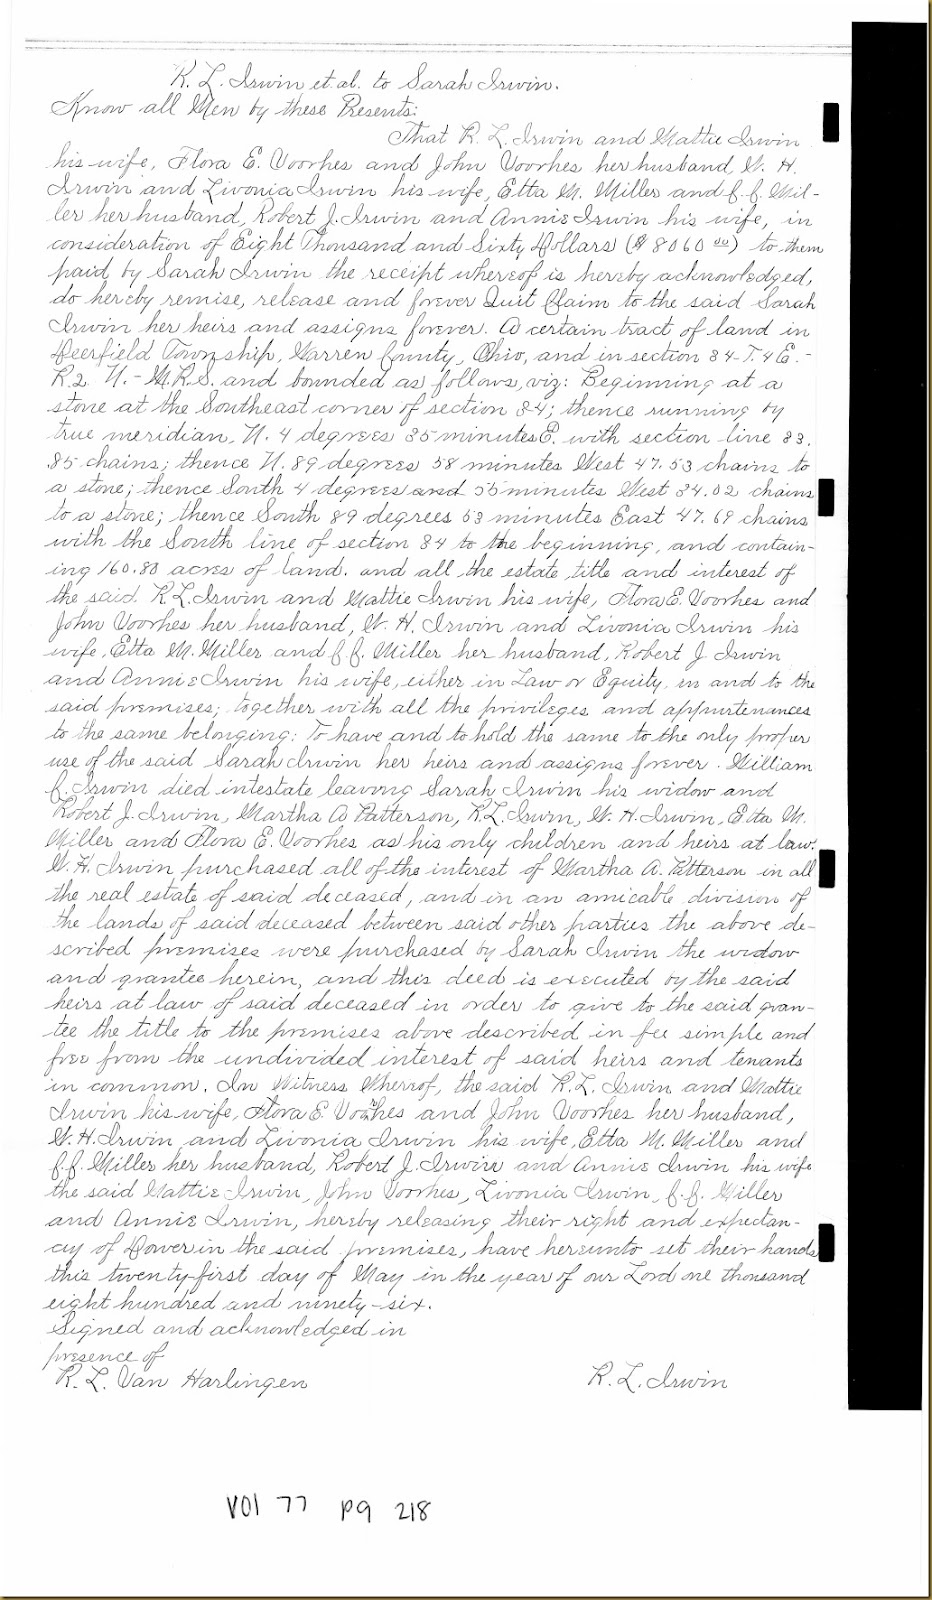 R. L. Irwin et al. to Sarah Irwin.
Know all Men by these Presents:
That R. L. Irwin and Mattie Irwin
his wife, Flora E. Voorhes and John Voorhes her husband, W. H.
Irwin and Livonia Irwin his wife, Etta M. Miller and J. J. Mil-
ler her husband, Robert J. Irwin and Annie Irwin his wife, in
consideration of Eight Thousand and Sixty Dollars ($8060 00) to them
paid by Sarah Irwin the receipt whereof is hereby acknowledged,
do hereby remise, release and forever Quit Claim to the said Sarah
Irwin her heirs and assigns forever. A certain tract of land in
Deerfield Township, Warren County, Ohio, and in section 34-T. 4 E.-
R. 2 N.- M.R.S. and bounded as follows, viz: Beginning at a
stone at the Southeast corner of section 34; thence running by
true meridian, N. 4 degrees 35 minutes E. with section line 33.
85 chains; thence N. 89 degrees 58 minutes West 47.53 chains to
a stone; thence South 4 degrees and 55 minutes West 34.02 chains
to a stone; thence South 89 degrees 53 minutes East 47.69 chains
with the South line of section 34 to the beginning, and contain-
ing 160.80 acres of land. and all the estate, title and interest of
the said R. L. Irwin and Mattie Irwin his wife, Flora E. Voorhes and
John Voorhes her husband, W. H. Irwin and Livonia Irwin his
wife, Etta M. Miller and J. J. Miller her husband, Robert J. Irwin
and Annie Irwin his wife, either in Law or Equity, in and to the
said premises; together with all the privileges and appurtenances
to the same belonging: To have and to hold the same to the only proper
use of the said Sarah Irwin her heirs and assigns forever. William
J. Irwin died intestate leaving Sarah Irwin his widow and
Robert J. Irwin, Martha A Patterson, R. L. Irwin, W. H. Irwin, Etta M.
Miller and Flora E. Voorhes as his only children and heirs at law.
W. H. Irwin purchased all of the interest of Martha A. Patterson in all
the real estate of said deceased, and in an amicable division of
the lands of said deceased between said other parties the above de-
scribed premises were purchased by Sarah Irwin the widow
and grantee herein, and this deed is executed by the said
heirs at law of said deceased in order to give to the said gran-
tee the title to the premises above described in fee simple and
free from the undivided interest of said heirs and tenants
in common. In Witness Wherrof, the said R. L. Irwin and Mattie
Irwin his wife, Flora E. Voorhes and John Voorhes her husband,
W. H. Irwin and Livonia Irwin his wife, Etta M. Miller and
J. J. Miller her husband, Robert J. Irwin and Annie Irwin his wife
the said Mattie Irwin, John Voorhes, Livonia Irwin, J. J. Miller
and Annie Irwin, hereby releasing their right and expectan-
cy of Dower in the said premises, have hereunto set their hands
this twenty-first day of May in the year of our Lord one thousand
eight hundred and ninety-six.
Signed and acknowledged in
presence of
R. L. Van Harlingen R. L. Irwin
VOl 77 pg 218